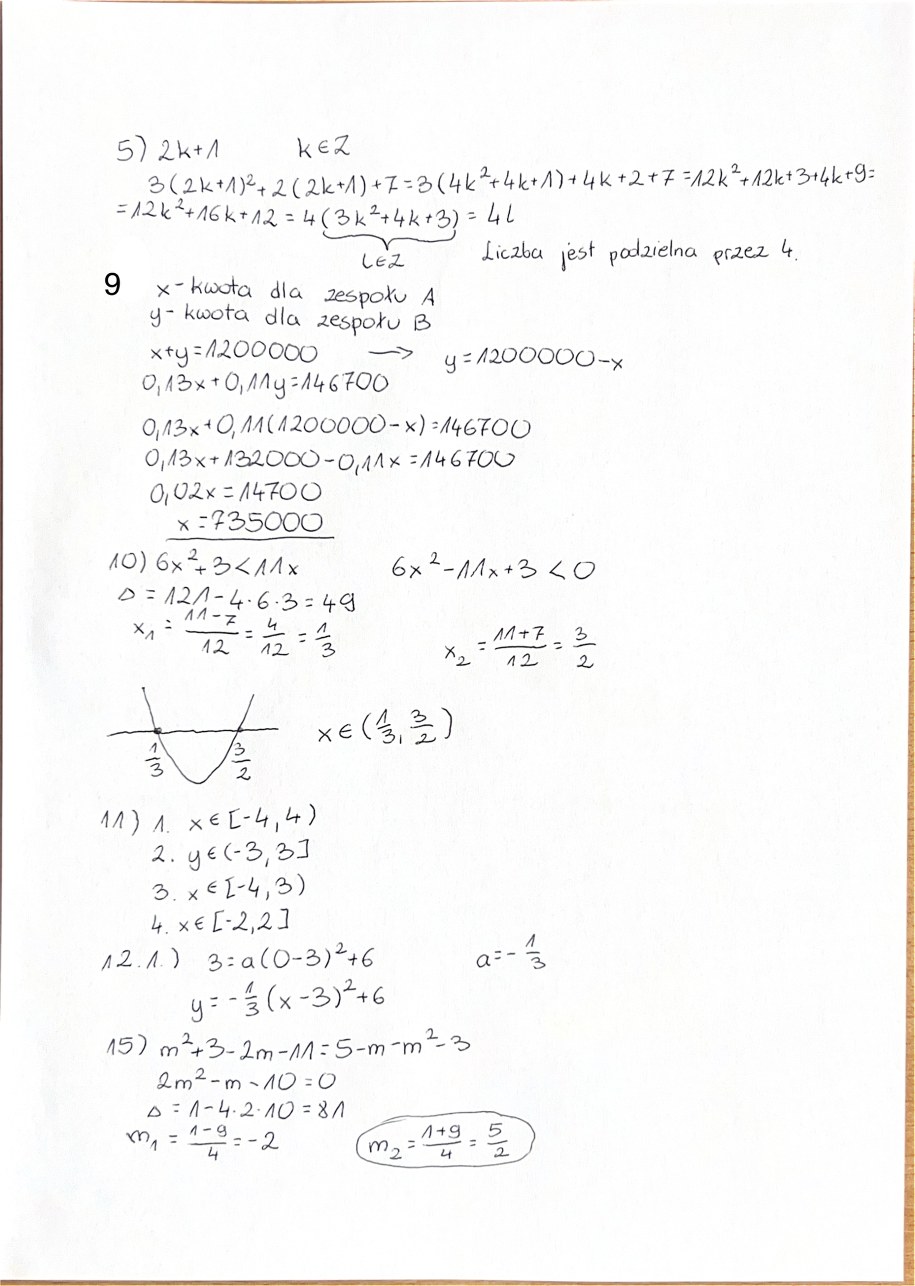 5) 2k+1 k∈Z
3(2k+1)²+2(2k+1)+7=3(4k²+4k+1)+4k+2+7=12k²+12k+3+4k+9=
=12k²+16k+12=4(3k²+4k+3)=4l
l∈Z Liczba jest podzielna przez 4.
9 x-kwota dla zespołu A
y-kwota dla zespołu B
x+y=1200000 → y=1200000-x
0,13x+0,11y=146700
0,13x+0,11(1200000-x)=146700
0,13x+132000-0,11x=146700
0,02x=14700
x=735000
10) 6x²+3<11x 6x²-11x+3<0
Δ=121-4·6·3=49
x₁=\frac{11-7}{12}=\frac{4}{12}=\frac{1}{3} x₂=\frac{11+7}{12}=\frac{3}{2}
x∈(\frac{1}{3},\frac{3}{2})
\frac{1}{3} \frac{3}{2}
11) 1. x∈[-4,4)
2. y∈(-3,3]
3. x∈[-4,3)
4. x∈[-2,2]
12.1.) 3=a(0-3)²+6 a=-\frac{1}{3}
y=-\frac{1}{3}(x-3)²+6
15) m²+3-2m-11=5-m-m²-3
2m²-m-10=0
Δ=1-4·2·10=81
m₁=\frac{1-9}{4}=-2 m₂=\frac{1+9}{4}=\frac{5}{2}